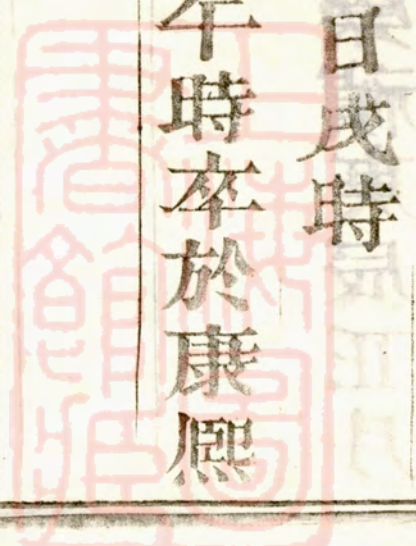 日戌時
午時卒於康熙